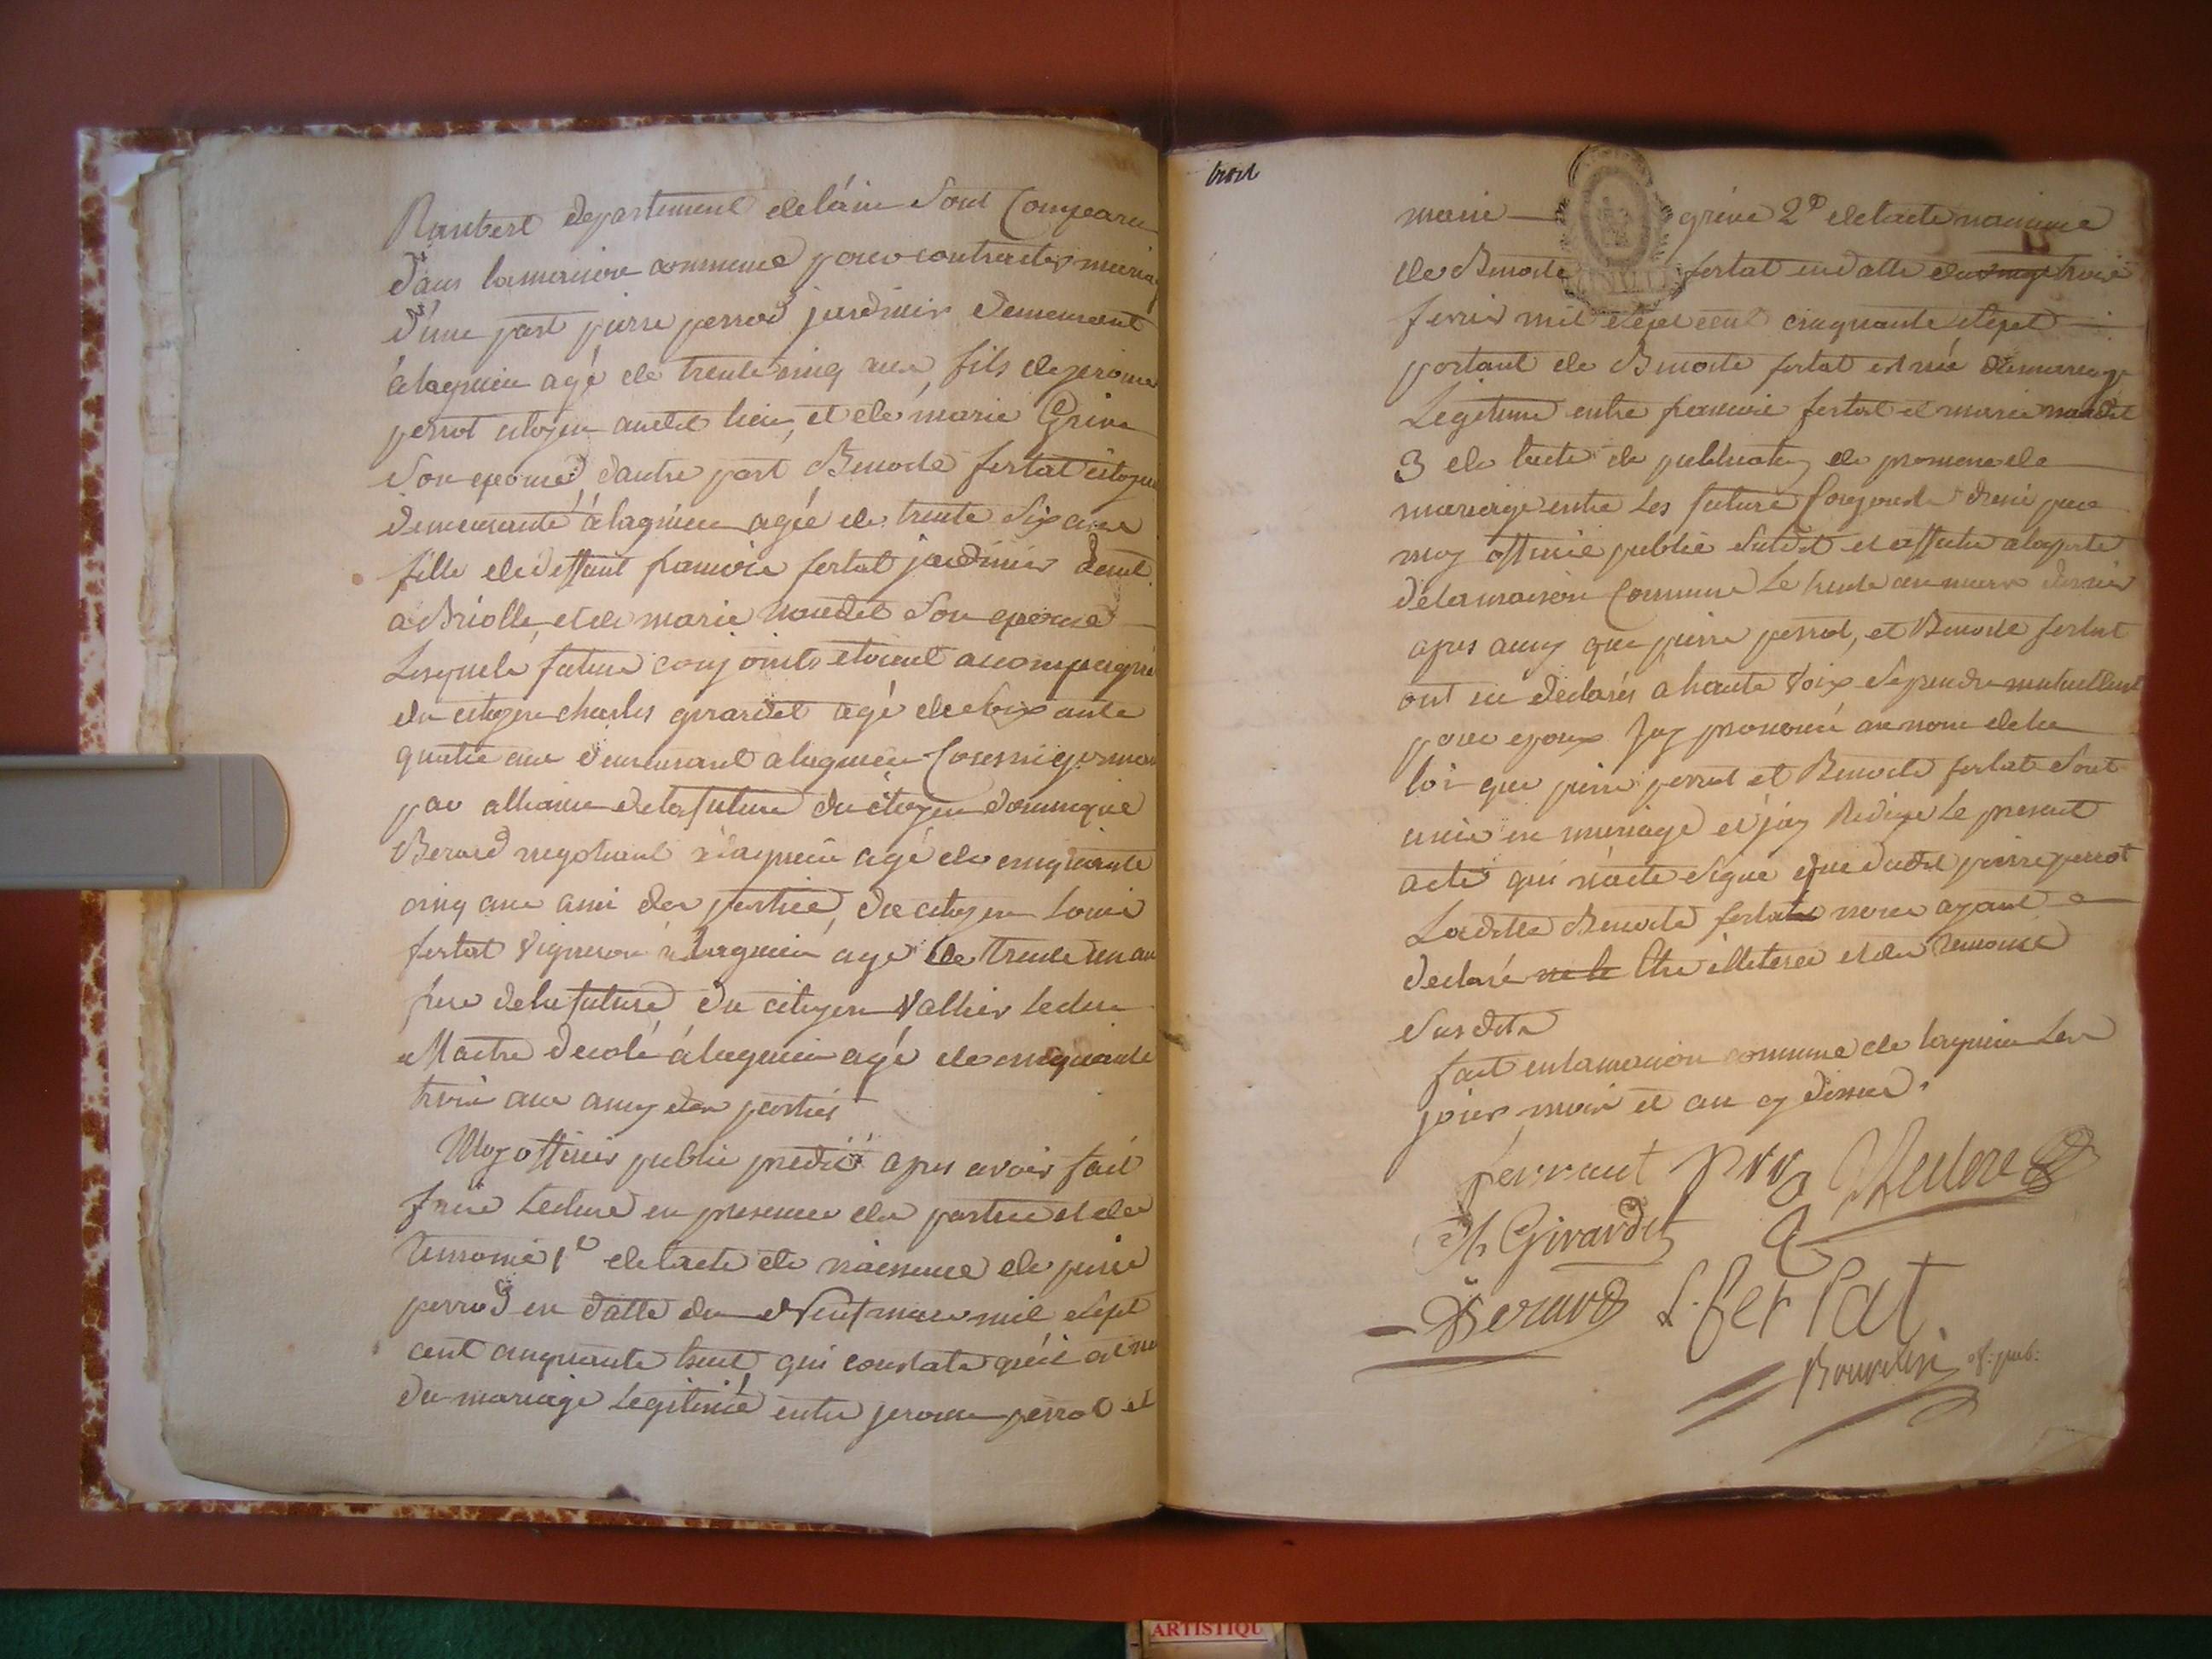 Rambert departement delain Sont Comparu
dans lamaison commune pour contracter mariage
d'une part pierre perrod jardinier demeurant
a lagnieu agé de trente cinq ans, fils de jerome
perrot citoyen audit lieu, et de marie Grive
Son epouse, dautre part Benoite fertat citoyenne
demeurante a lagnieu agée de trente Six ans
fille de deffunt francois fertat jardinier demt
a Briolle, et de marie naudet Son epouse
Lesquels futurs conjoints etoient acompagné
du citoyen charles girardet agé de soixante
quatre ans demeurant a lagnieu Cousin germain
par alliance de la future du citoyen dominique
Berard negotiant a lagnieu agé de cinquante
cinq ans ami des parties, du citoyen Louis
fertat Vigneron a lagnieu agé de Trente un an
frere de la future du citoyen Vallier leduc
Maitre decole a lagnieu agé de cinquante
trois ans amy des parties
Moy officier public predit apres avoir fait
faire Lecture en presence des parties et des
temoins 1º de lacte de naissance de pierre
perrod en datte du neuf mars mil Sept
cent cinquante huit qui constate qu'il est né
du mariage Legitime entre jerome perrod et
trois
marie grive 2º de lacte naissance
de Benoite fertat en datte du trois
fevrier mil Sept cent cinquante Sept
portant que Benoite fertat est née du mariage
Legitime entre francois fertat et marie naudet
3 de lacte de publication de promesse de
mariage entre Les futurs Conjoints dressé par
moy officier public Susdit et affiché a la porte
de la maison Commune Le trente un mars dernier
apres aussy que pierre perrod, et Benoite fertat
ont eu declarés a haute Voix Se prendre mutuellement
pour epoux Jay prononcé au nom de la
loi que pierre perrod et Benoite fertat Sont
unis en mariage et j'ay Redigé Le present
acte qui n'a eté Signé que dudit pierre perrot
Laditte Benoite fertat nous ayant
declaré etre illeterée et des temoins
Susdits
fait en la maison commune de lagnieu Les
jour mois et an cy dessus.
perraut VLeduc
Ch Girardet
Berard L. fertat
of: pub: